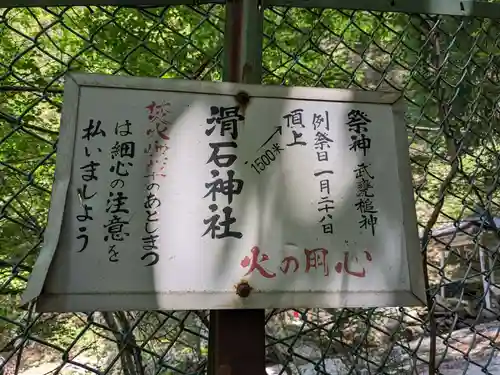 祭神 武甕槌神
例祭日 一月二十八日
頂上
1500米
滑石神社
火の用心
のあとしまつ
は細心の注意を
払いましょう